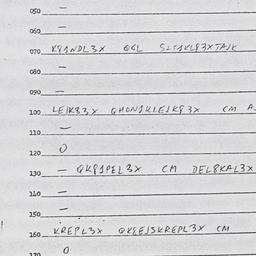 050 —
060 —
070 K81NDL3X OGL SLT1KL83XTAJK
080 —
090 —
100 LEJK83X QHON1KLEJK83X CM A
110 —
120 O
130 — QK81PEL3X CM DEL8KAL3X
140 —
150 —
160 KREPL3X QK8EJSKREPL3X CM
170 O